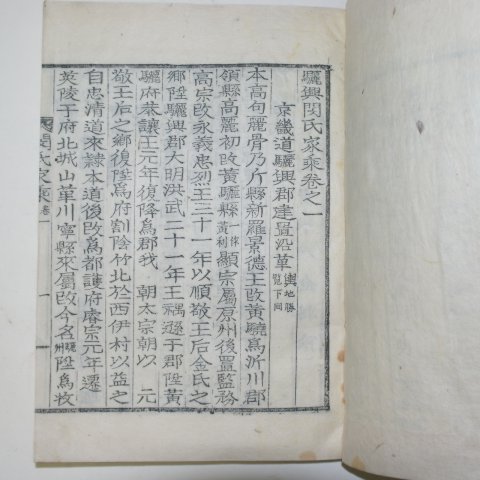 驪興閔氏家乘卷之一
京畿道驪興郡建置沿革輿地勝覽下同
本高句麗骨乃斤縣新羅景德王改黃驍爲沂川郡
領縣高麗初改黃驪縣一作黃利顯宗屬原州後置監務
高宗改永義忠烈王三十一年以順敬王后金氏之
鄕陞驪興郡大明洪武二十一年王禑遜于郡陞黃
驪府恭讓王元年復降爲郡我 朝太宗朝以 元
敬王后之鄕復陞爲府割陰竹北於西伊村以益之
自忠淸道來隸本道後改爲都護府睿宗元年遷
英陵于府北城山革川寧縣來屬改今名驪州陞爲牧
閔氏家乘 卷一 一